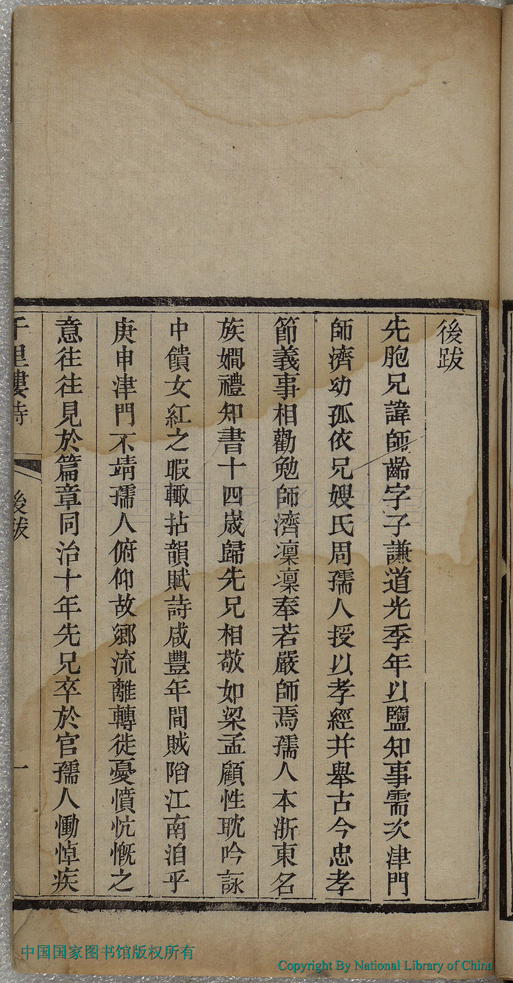 後跋
先胞兄諱師齡字子謙道光季年以鹽知事需次津門
師濟幼孤依兄嫂氏周孺人授以孝經并舉古今忠孝
節義事相勸勉師濟凜凜奉若嚴師焉孺人本浙東名
族嫺禮知書十四歲歸先兄相敬如梁孟顧性耽吟詠
中饋女紅之暇輙拈韻賦詩咸豐年間賊陷江南洎乎
庚申津門不靖孺人俯仰故鄉流離轉徙憂憤忼慨之
意往往見於篇章同治十年先兄卒於官孺人慟悼疾
千里樓詩 後跋 一
中国国家图书馆版权所有
Copyright By National Library of China